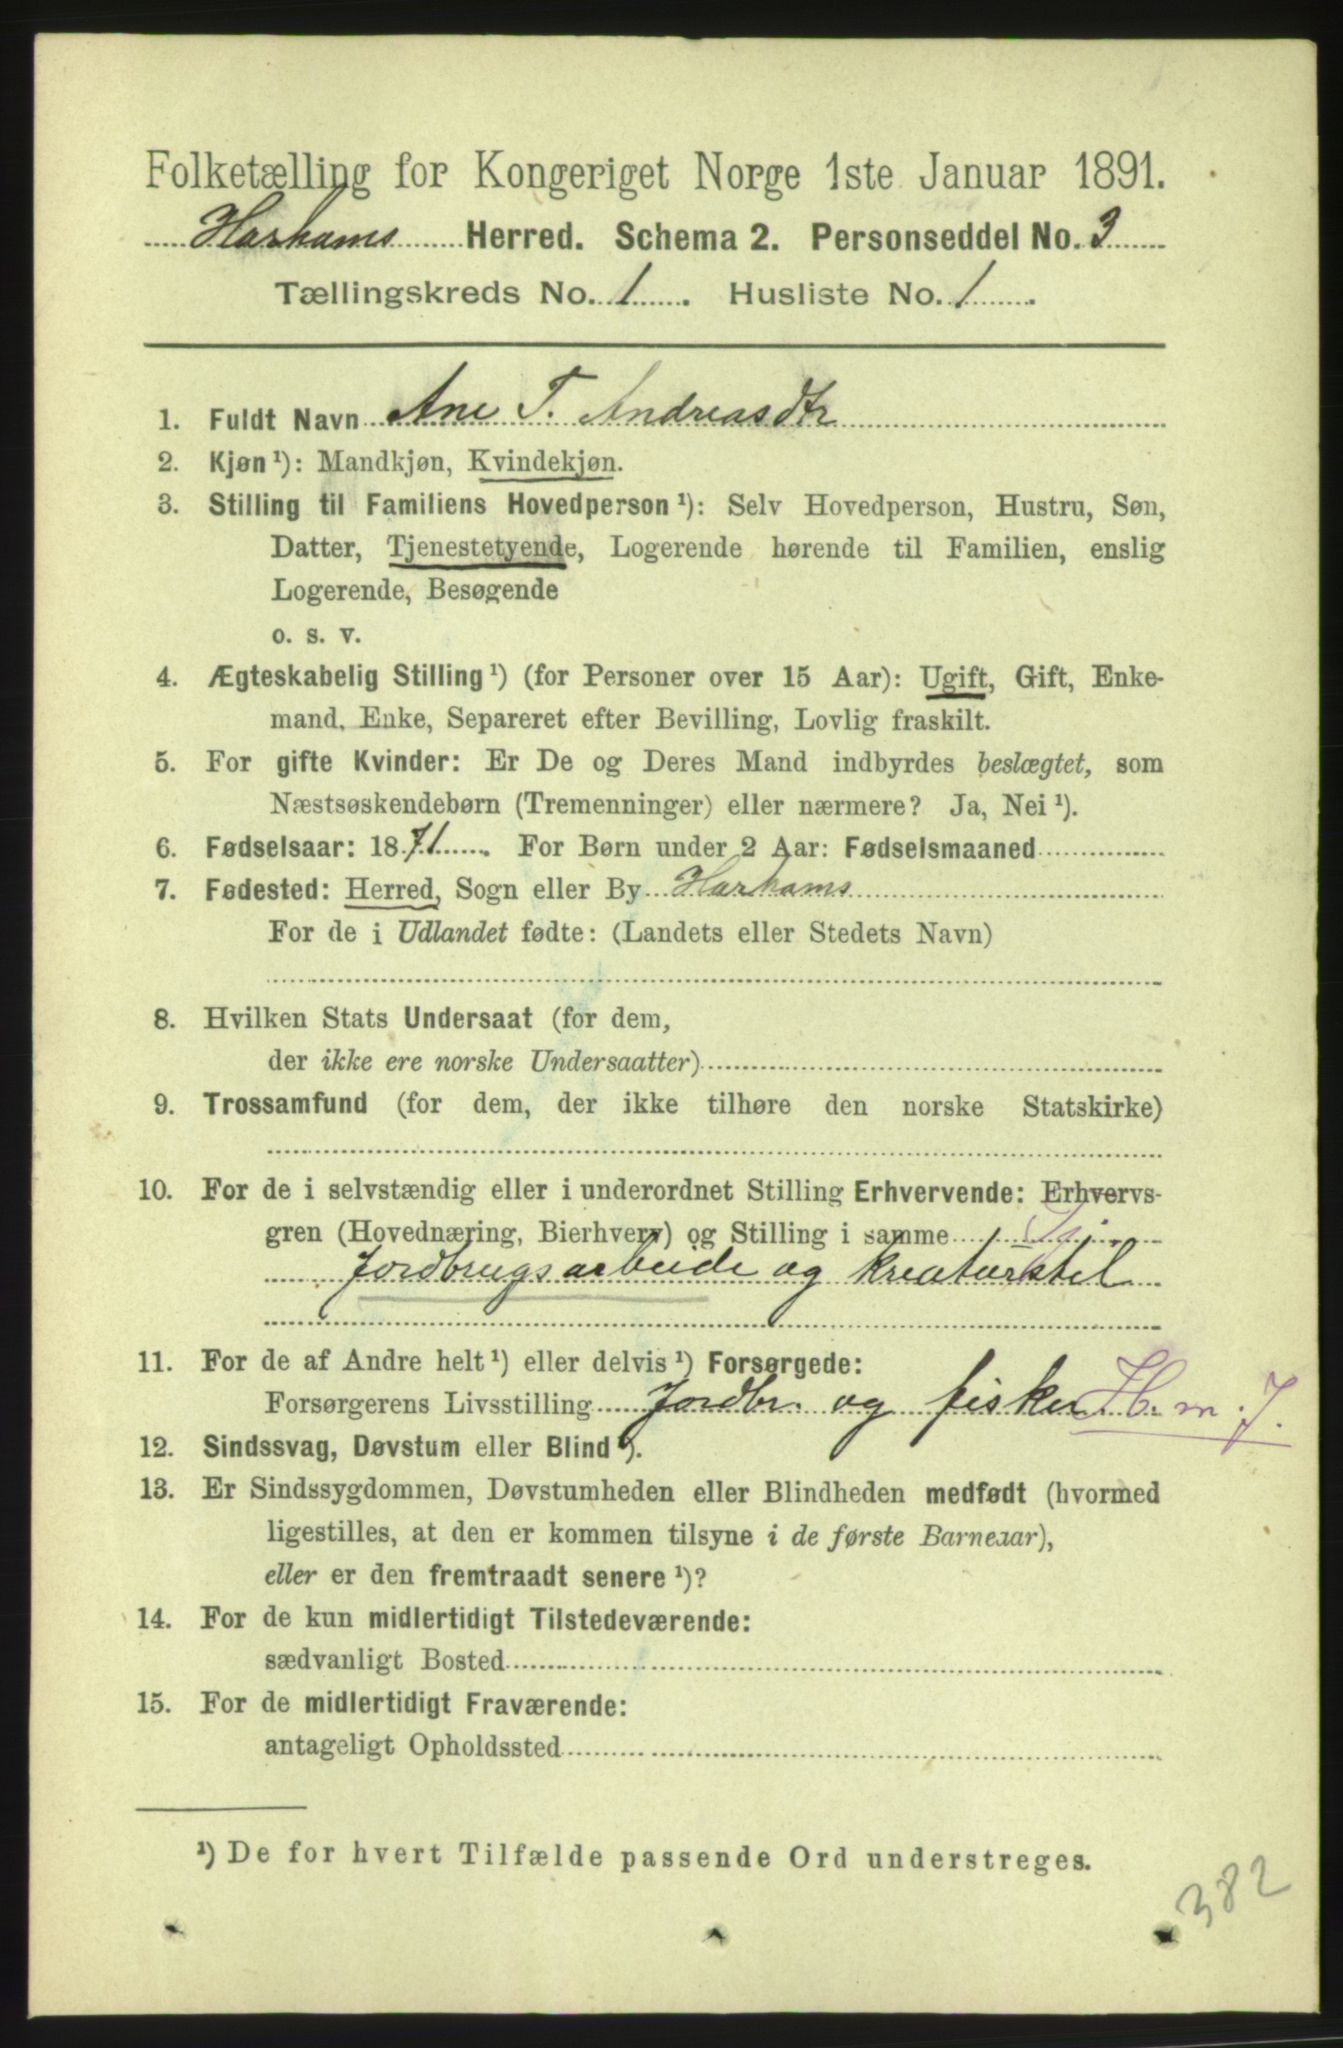 Folketælling for Kongeriget Norge 1ste Januar 1891.
Harhams Herred. Schema 2. Personseddel No. 3
Tællingskreds No. 1. Husliste No. 1.
1. Fuldt Navn Ane T. Andreasdtr
2. Kjøn ¹): Mandkjøn, Kvindekjøn.
3. Stilling til Familiens Hovedperson ¹): Selv Hovedperson, Hustru, Søn,
Datter, Tjenestetyende, Logerende hørende til Familien, enslig
Logerende, Besøgende
o. s. v.
4. Ægteskabelig Stilling ¹) (for Personer over 15 Aar): Ugift, Gift, Enke-
mand, Enke, Separeret efter Bevilling, Lovlig fraskilt.
5. For gifte Kvinder: Er De og Deres Mand indbyrdes beslægtet, som
Næstsøskendebørn (Tremenninger) eller nærmere? Ja, Nei ¹).
6. Fødselsaar: 1871. For Børn under 2 Aar: Fødselsmaaned
7. Fødested: Herred, Sogn eller By Harhams
For de i Udlandet fødte: (Landets eller Stedets Navn)
8. Hvilken Stats Undersaat (for dem,
der ikke ere norske Undersaatter)
9. Trossamfund (for dem, der ikke tilhøre den norske Statskirke)
10. For de i selvstændig eller i underordnet Stilling Erhvervende: Erhvervs-
gren (Hovednæring, Bierhverv) og Stilling i samme Tj.
Jordbrugsarbeide og kreaturstel
11. For de af Andre helt ¹) eller delvis ¹) Forsørgede:
Forsørgerens Livsstilling Jordbr. og fisker H. m. J.
12. Sindssvag, Døvstum eller Blind ¹).
13. Er Sindssygdommen, Døvstumheden eller Blindheden medfødt (hvormed
ligestilles, at den er kommen tilsyne i de første Barneaar),
eller er den fremtraadt senere ¹)?
14. For de kun midlertidigt Tilstedeværende:
sædvanligt Bosted
15. For de midlertidigt Fraværende:
antageligt Opholdssted
¹) De for hvert Tilfælde passende Ord understreges.
382